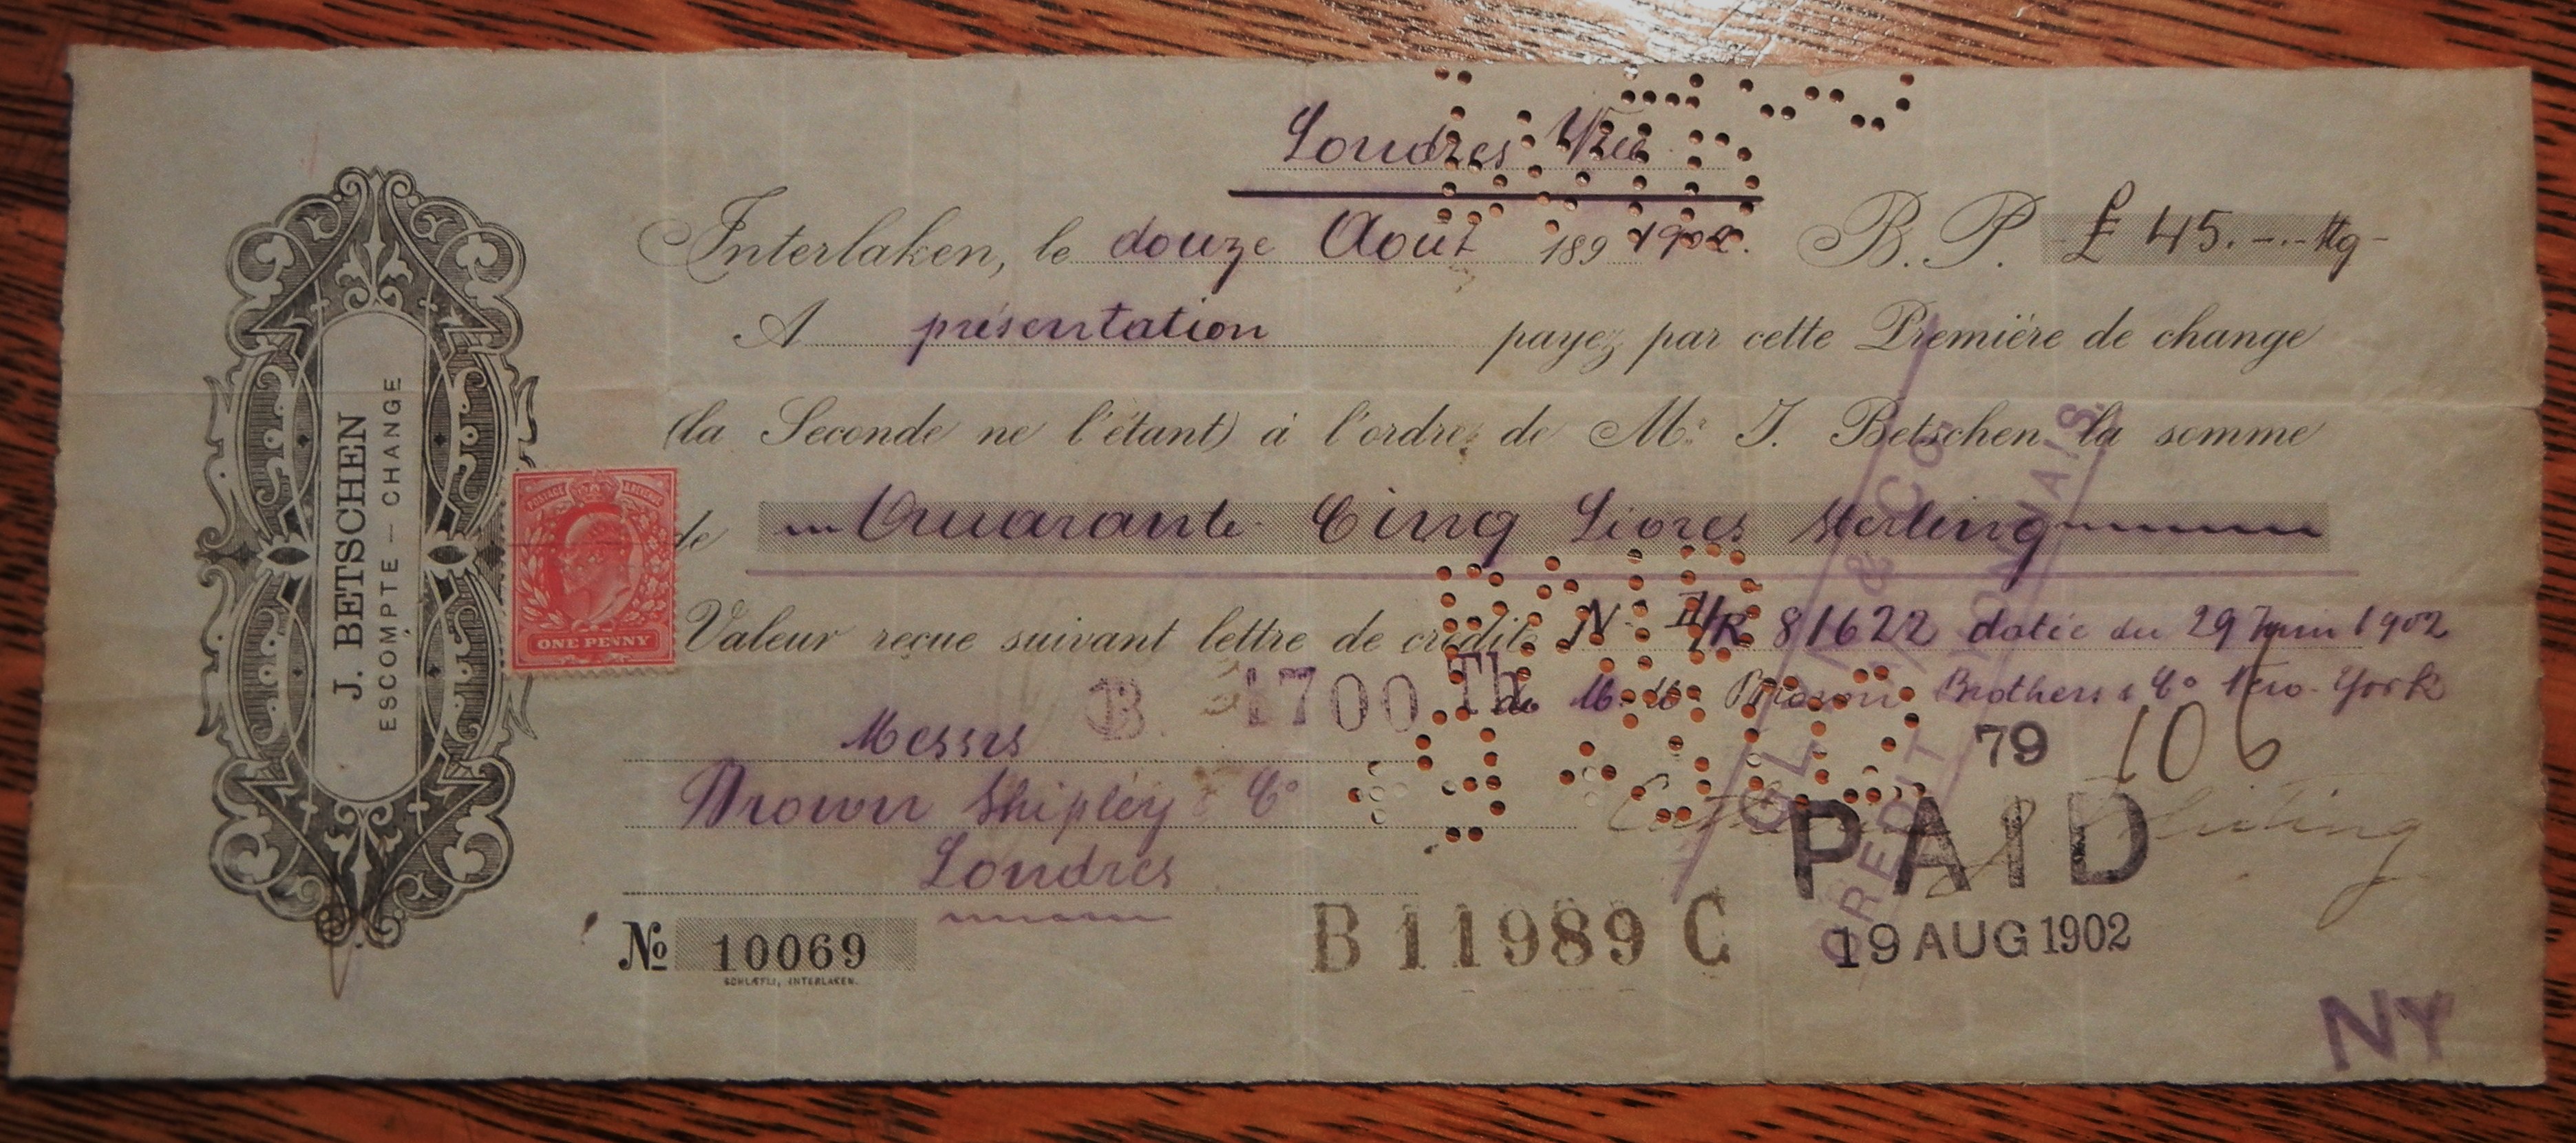 Londres
Interlaken, le douze Août 189 1902. B. P. £ 45. Stg
A présentation payez par cette Première de change
(la Seconde ne l'étant) à l'ordre de Mr. J. Betschen la somme
de Quarante Cinq Livres Sterling
Valeur reçue suivant lettre de crédit N° H/R 81622 datée du 29 Juin 1902
de M. M. Brown Brothers & Co New-York
B 1700 Th
Messrs
Brown Shipley & Co
Londres
79
106
PAID
19 AUG 1902
No 10069
SCHLÆFLI, INTERLAKEN.
B 11989 C
NY
J. BETSCHEN
ESCOMPTE — CHANGE
POSTAGE & REVENUE
ONE PENNY
& CO
CREDIT LYONNAIS